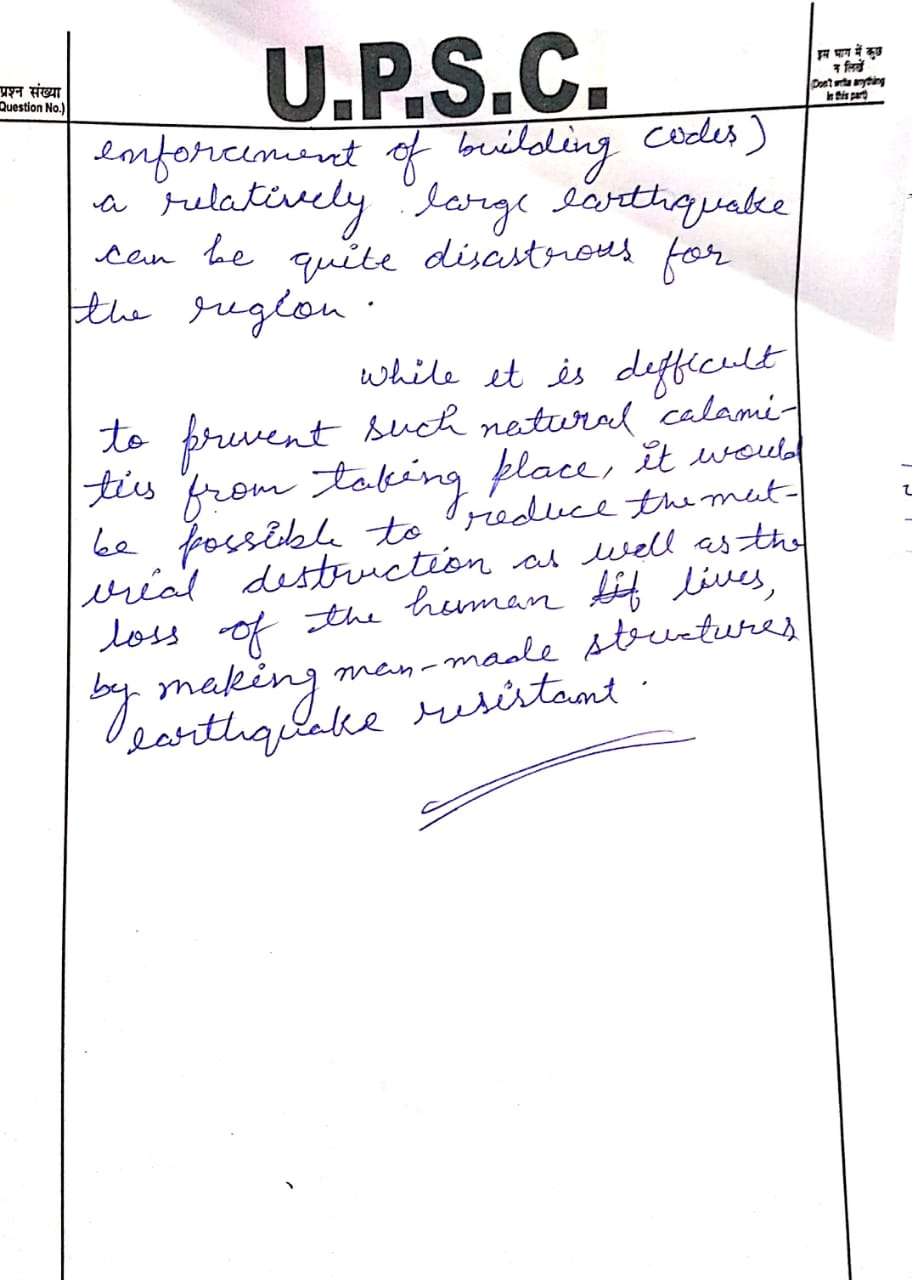 U.P.S.C.
प्रश्न संख्या
Question No.)
इस भाग में कुछ
न लिखें
(Don't write anything
in this part)
enforcement of building codes)
a relatively large earthquake
can be quite disastrous for
the region.
While it is difficult
to prevent such natural calami-
ties from taking place, it would
be possible to reduce the mat-
erial destruction as well as the
loss of the human lif lives,
by making man-made structures
earthquake resistant.